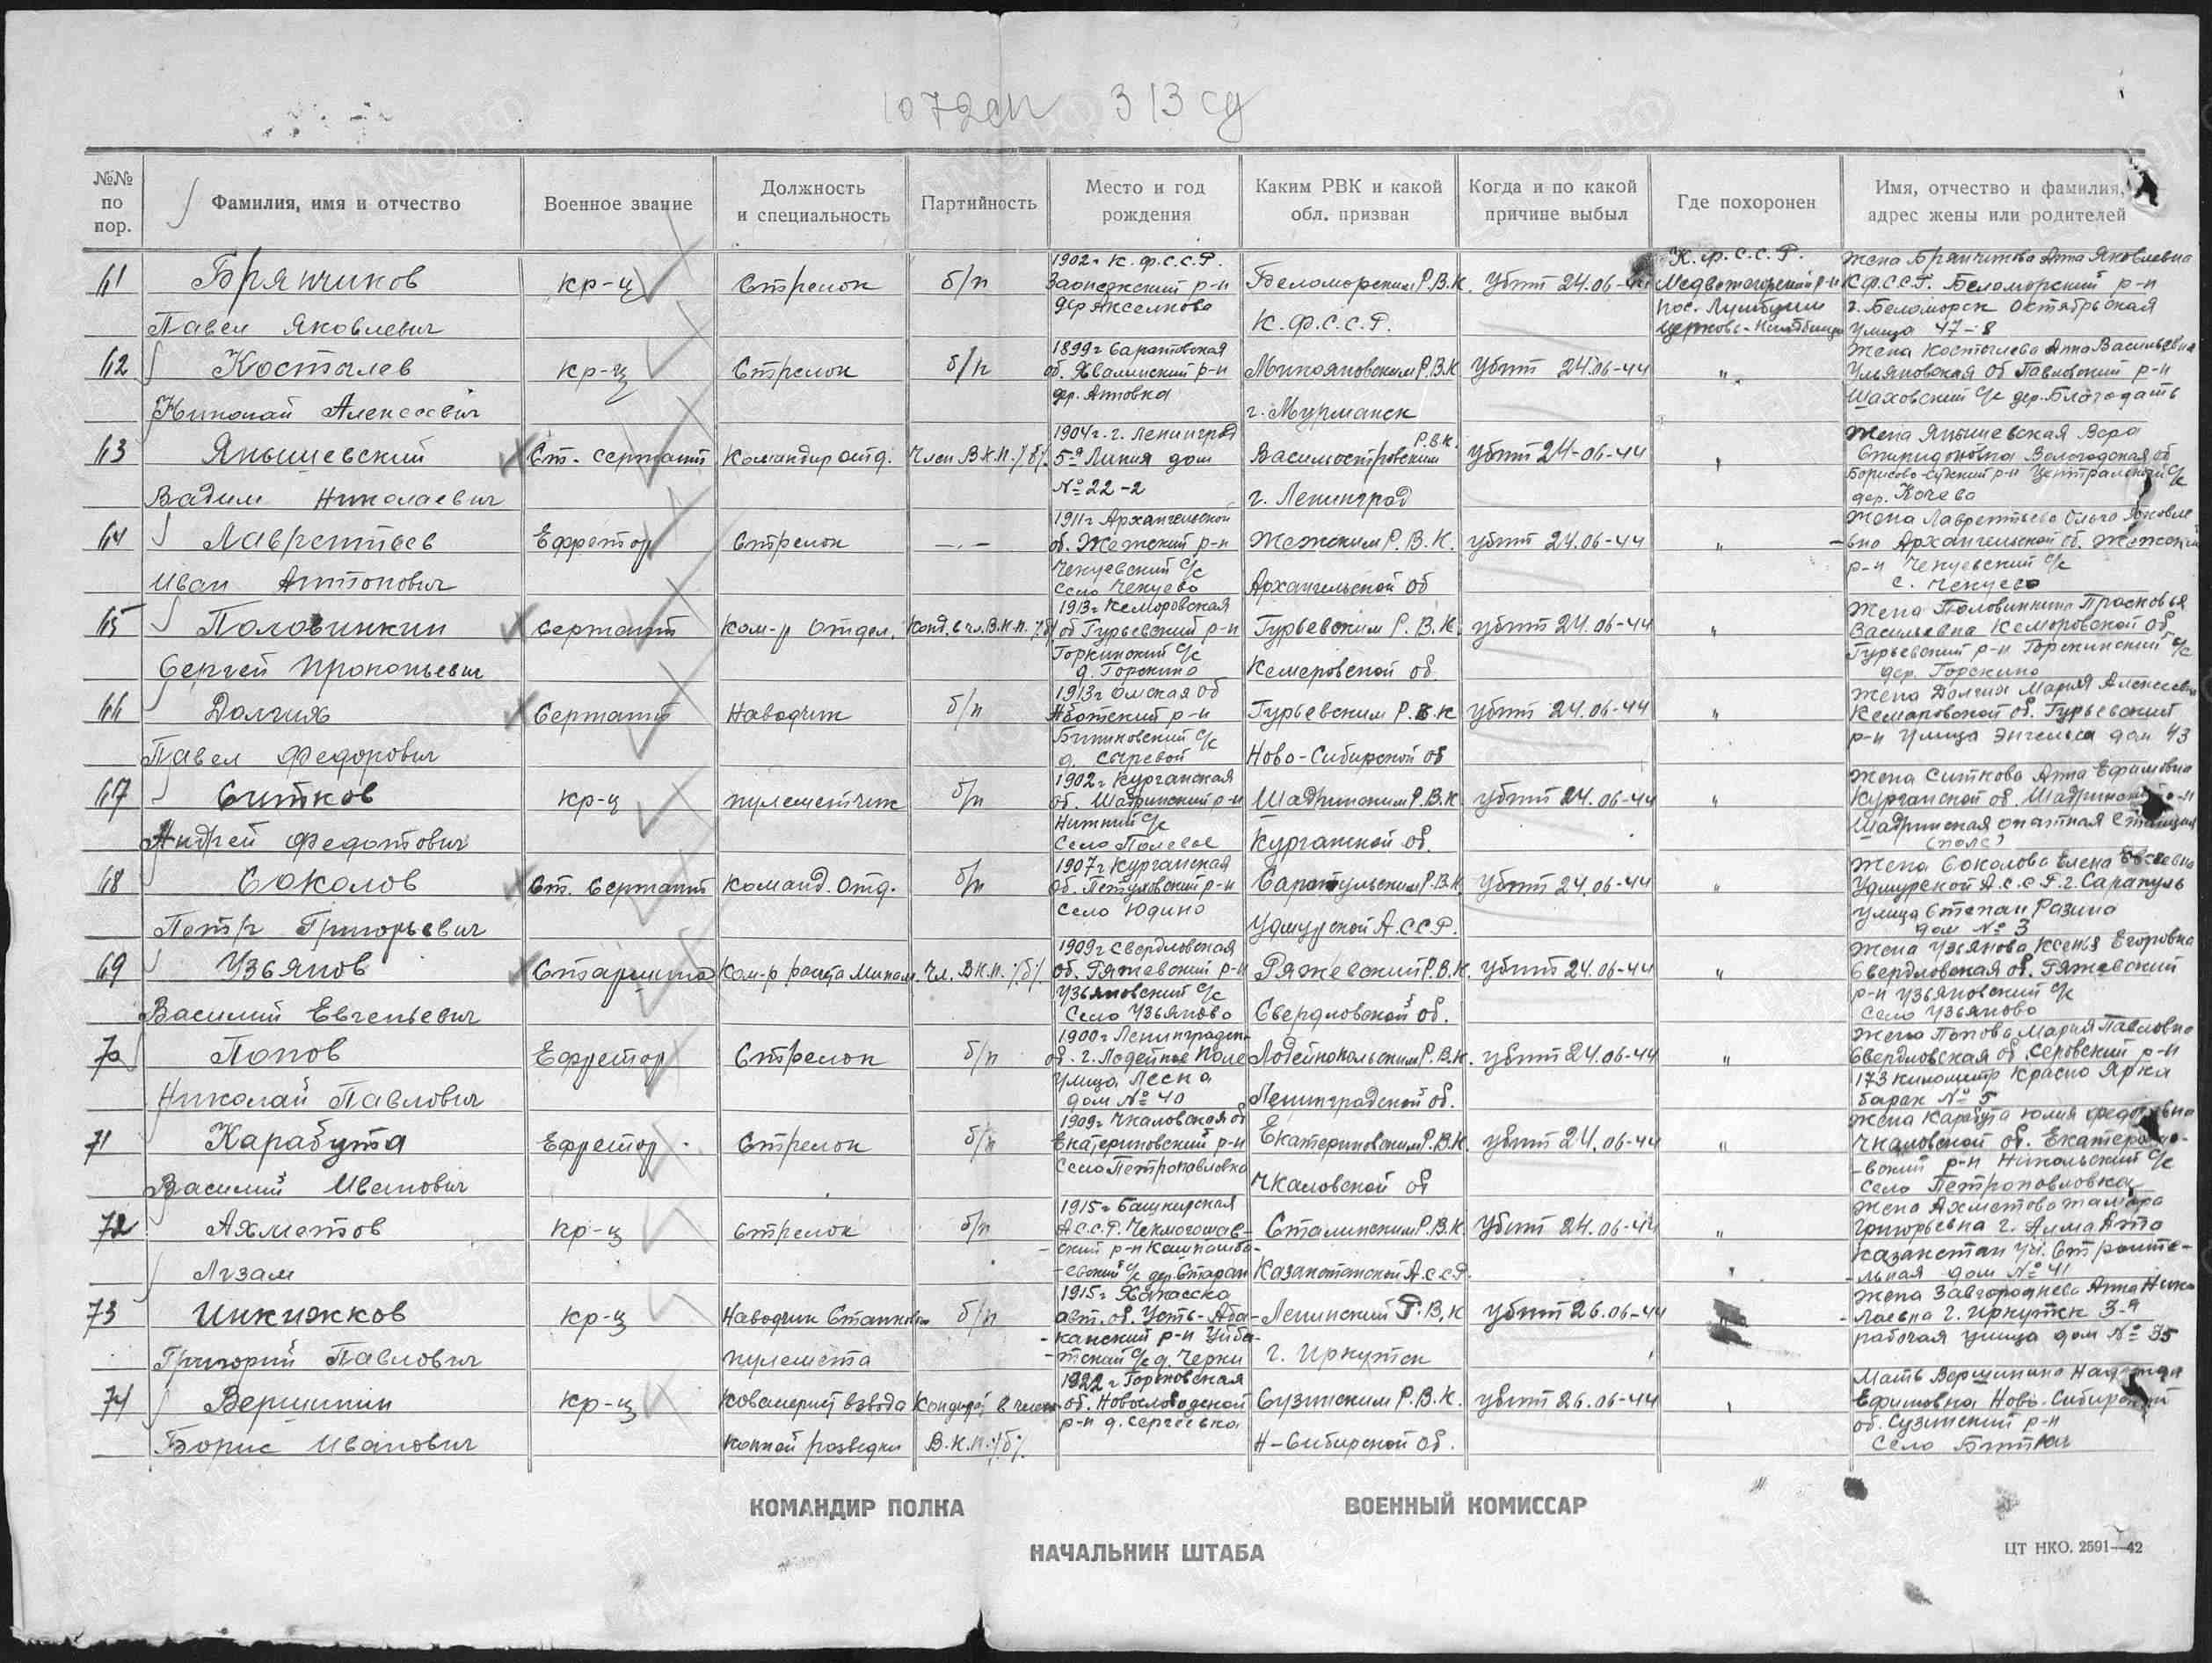 1072 сп 313 сд
№№ по пор.
Фамилия, имя и отчество
Военное звание
Должность и специальность
Партийность
Место и год рождения
Каким РВК и какой обл. призван
Когда и по какой причине выбыл
Где похоронен
Имя, отчество и фамилия, адрес жены или родителей
61 Брянчиков Павел Яковлевич
кр-ц
Стрелок
б/п
1902г К.Ф.С.С.Р.
Заонежский р-н
дер
Беломорским Р.В.К.
К.Ф.С.С.Р.
Убит 24.06-44
К.Ф.С.С.Р.
Медвежьегорский р-н
пос.
церковь
Жена Брянчикова Анна Яковлевна
К.Ф.С.С.Р. Беломорский р-н
г. Беломорск Октябрьская
Улица 47-8
62 Костылев Николай Алексеевич
кр-ц
Стрелок
б/п
1899г Саратовская
об. Хвалынский р-н
дер. Анновка
Микояновским Р.В.К
г. Мурманск
Убит 24.06-44
"
Жена Костылева Анна Васильевна
Ульяновская Об Павловский р-н
Шаховский с/с дер. Благодать
63 Янышевский Вадим Николаевич
Ст. сержант
Командир отд.
Член В.К.П./б/.
1904г. г. Ленинград
5-я Линия дом
№ 22-2
Василеостровским Р.В.К.
г. Ленинград
Убит 24-06-44
"
Жена Янышевская Вера
Спиридоновна Вологодская об
Борисово-Судский р-н Центральский с/с
дер. Кочево
64 Лаврентьев Иван Антонович
Ефрейтор
Стрелок
—.—
1911г Архангельской
об. р-н
Чекуевский с/с
Село Чекуево
Р.В.К.
Архангельской об
убит 24.06-44
"
Жена Лаврентьева Ольга Яковле-
вна Архангельской об.
р-н Чекуевский с/с
с. Чекуево
65 Половинкин Сергей Прокопьевич
Сержант
Ком-р Отдел.
Канд. в чл. В.К.П. /б/
1913г Кемеровская
об Гурьевский р-н
Горскинский с/с
д. Горскино
Гурьевским Р.В.К.
Кемеровской об.
убит 24.06-44
"
Жена Половинкина Прасковья
Васильевна Кемеровской об
Гурьевский р-н Горскинский с/с
дер. Горскино
66 Долгих Павел Федорович
Сержант
Наводчик
б/п
1913г Омская Об
Абатский р-н
с/с
д.
Гурьевским Р.В.К
Ново-Сибирской об
убит 24.06-44
"
Жена Долгих Мария Алексеевна
Кемеровской об. Гурьевский
р-н Улица Энгельса дом 43
67 Ситков Андрей Федотович
кр-ц
пулеметчик
б/п
1902г Курганская
об. Шадринский р-н
с/с
Село Полевое
Шадринским Р.В.К.
Курганской об.
убит 24.06-44
"
Жена Ситкова Анна Ефимовна
Курганской об. Шадринский р-н
Шадринская опытная Станция
(поле)
68 Соколов Петр Григорьевич
Ст. Сержант
Команд. Отд.
б/п
1907г Курганская
Об. Петуховский р-н
Село Юдино
Сарапульским Р.В.К.
Удмурской А.С.С.Р.
Убит 24.06-44
"
Жена Соколова Елена Евсеевна
Удмурской А.С.С.Р. г. Сарапуль
улица Степан Разина
дом № 3
69 Узьянов Василий Евгеньевич
Старшина
Ком-р мином.
Чл. В.К.П. /б/.
1909г Свердловская
об. Ряжевский р-н
Узьяновский с/с
Село Узьяново
Ряжевский Р.В.К.
Свердловской об.
убит 24.06-44
"
Жена Узьянова Ксенья Егоровна
Свердловская об. Ряжевский
р-н Узьяновский с/с
Село Узьяново
70 Попов Николай Павлович
Ефрейтор
Стрелок
б/п
1900г Ленинградск
об. г. Лодейное Поле
улица Леска
дом № 40
Лодейнопольским Р.В.К.
Ленинградской об.
убит 24.06-44
"
Жена Попова Мария Павловна
Свердловская об. Серовский р-н
173 километр Красно Ярка
барак № 5
71 Карабута Василий Иванович
Ефрейтор
Стрелок
б/п
1909г Чкаловская об
Екатериновский р-н
Село Петропавловка
Екатериновским Р.В.К.
Чкаловской об
убит 24.06-44
"
Жена Карабута Юлия Федоровна
Чкаловской об. Екатерино-
-вский р-н Никольский с/с
Село Петропавловка
72 Ахметов Агзам
кр-ц
Стрелок
б/п
1915г Башкирская
А.С.С.Р. Чекмагошев-
-ский р-н
с/с дер.
Сталинским Р.В.К
Казахстанской А.С.С.Р.
Убит 24.06-44
"
Жена Ахметова Тамара
Григорьевна г. Алма Ата
Казахстан ул. Строите-
-льная дом № 41
73 Инкижков Григорий Павлович
кр-ц
Наводчик Станкового пулемета
б/п
1915г Хакасска
авт. об. Усть-Аба-
-канский р-н Уйба-
-тский с/с д. Чарки
Ленинский Р.В.К
г. Иркутск
убит 26.06-44
Жена Завгороднева Анна Нико-
-лаевна г. Иркутск 3-я
рабочая улица дом № 35
74 Вершинин Борис Иванович
кр-ц
Ковалерист взвода конной разведки
Кандидат в члены В.К.П. /б/.
1922г Горьковская
об. Новослободской
р-н д. Сергеевка
Сузунским Р.В.К.
Н-Сибирской об.
убит 26.06-44
"
Мать Вершинина Надежда
Ефимовна Ново-Сибирской
об. Сузунский р-н
Село Битки
КОМАНДИР ПОЛКА
ВОЕННЫЙ КОМИССАР
НАЧАЛЬНИК ШТАБА
ЦТ НКО. 2591—42